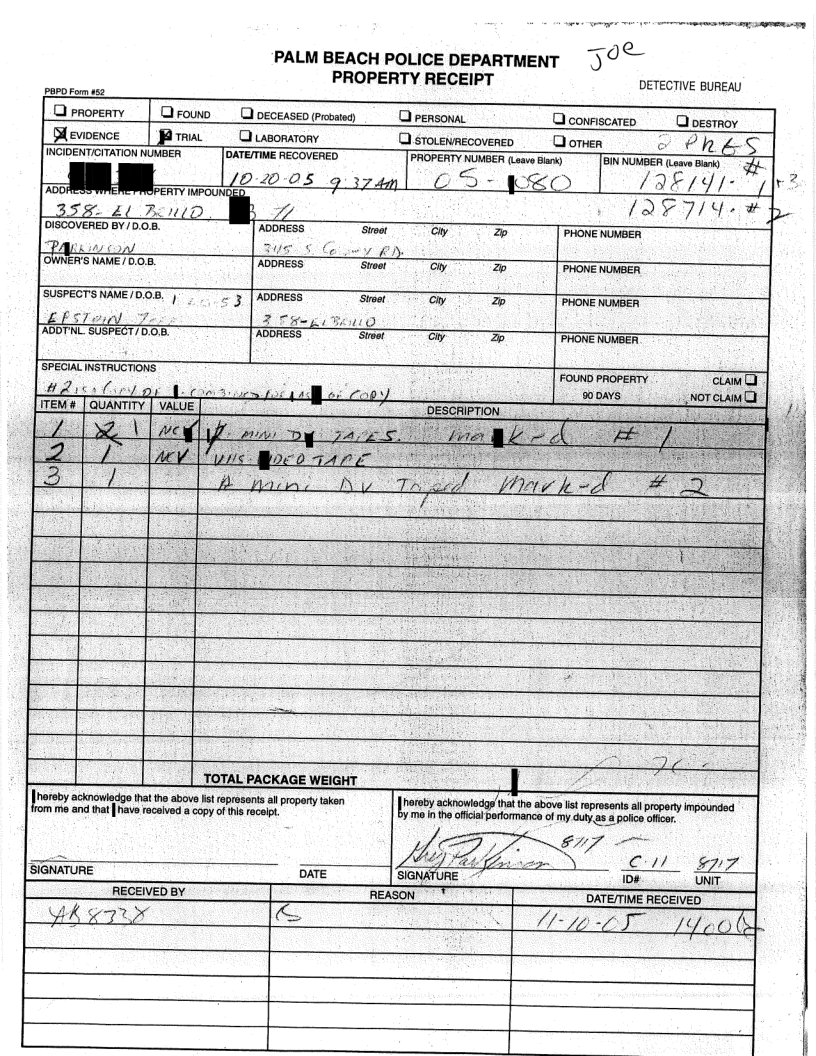 Joe
PALM BEACH POLICE DEPARTMENT
PROPERTY RECEIPT
DETECTIVE BUREAU
PBPD Form #52
PROPERTY FOUND DECEASED (Probated) PERSONAL CONFISCATED DESTROY
EVIDENCE TRIAL LABORATORY STOLEN/RECOVERED OTHER 2 PKGS
INCIDENT/CITATION NUMBER DATE/TIME RECOVERED PROPERTY NUMBER (Leave Blank) BIN NUMBER (Leave Blank)
10-20-05 9:37AM 05- 080 128141- #1+3
ADDRESS WHERE PROPERTY IMPOUNDED
358- El Brillo 128714- #2
DISCOVERED BY / D.O.B. ADDRESS Street City Zip PHONE NUMBER
PARKINSON 345 S. County RD.
OWNER'S NAME / D.O.B. ADDRESS Street City Zip PHONE NUMBER
SUSPECT'S NAME / D.O.B. 53 ADDRESS Street City Zip PHONE NUMBER
358-El Brillo
ADDT'NL. SUSPECT / D.O.B. ADDRESS Street City Zip PHONE NUMBER
SPECIAL INSTRUCTIONS FOUND PROPERTY CLAIM
#2 is a copy of 90 DAYS NOT CLAIM
ITEM # QUANTITY VALUE DESCRIPTION
1 2 1 MINI TAPES. #1
2 1 NCV VHS TAPE
3 1 A mini DV Taped Mark-d #2
TOTAL PACKAGE WEIGHT
hereby acknowledge that the above list represents all property taken
from me and that have received a copy of this receipt.
hereby acknowledge that the above list represents all property impounded
by me in the official performance of my duty as a police officer.
Greg Parkinson 8717 C-11 8717
SIGNATURE DATE SIGNATURE ID# UNIT
RECEIVED BY REASON DATE/TIME RECEIVED
11-10-05 1400